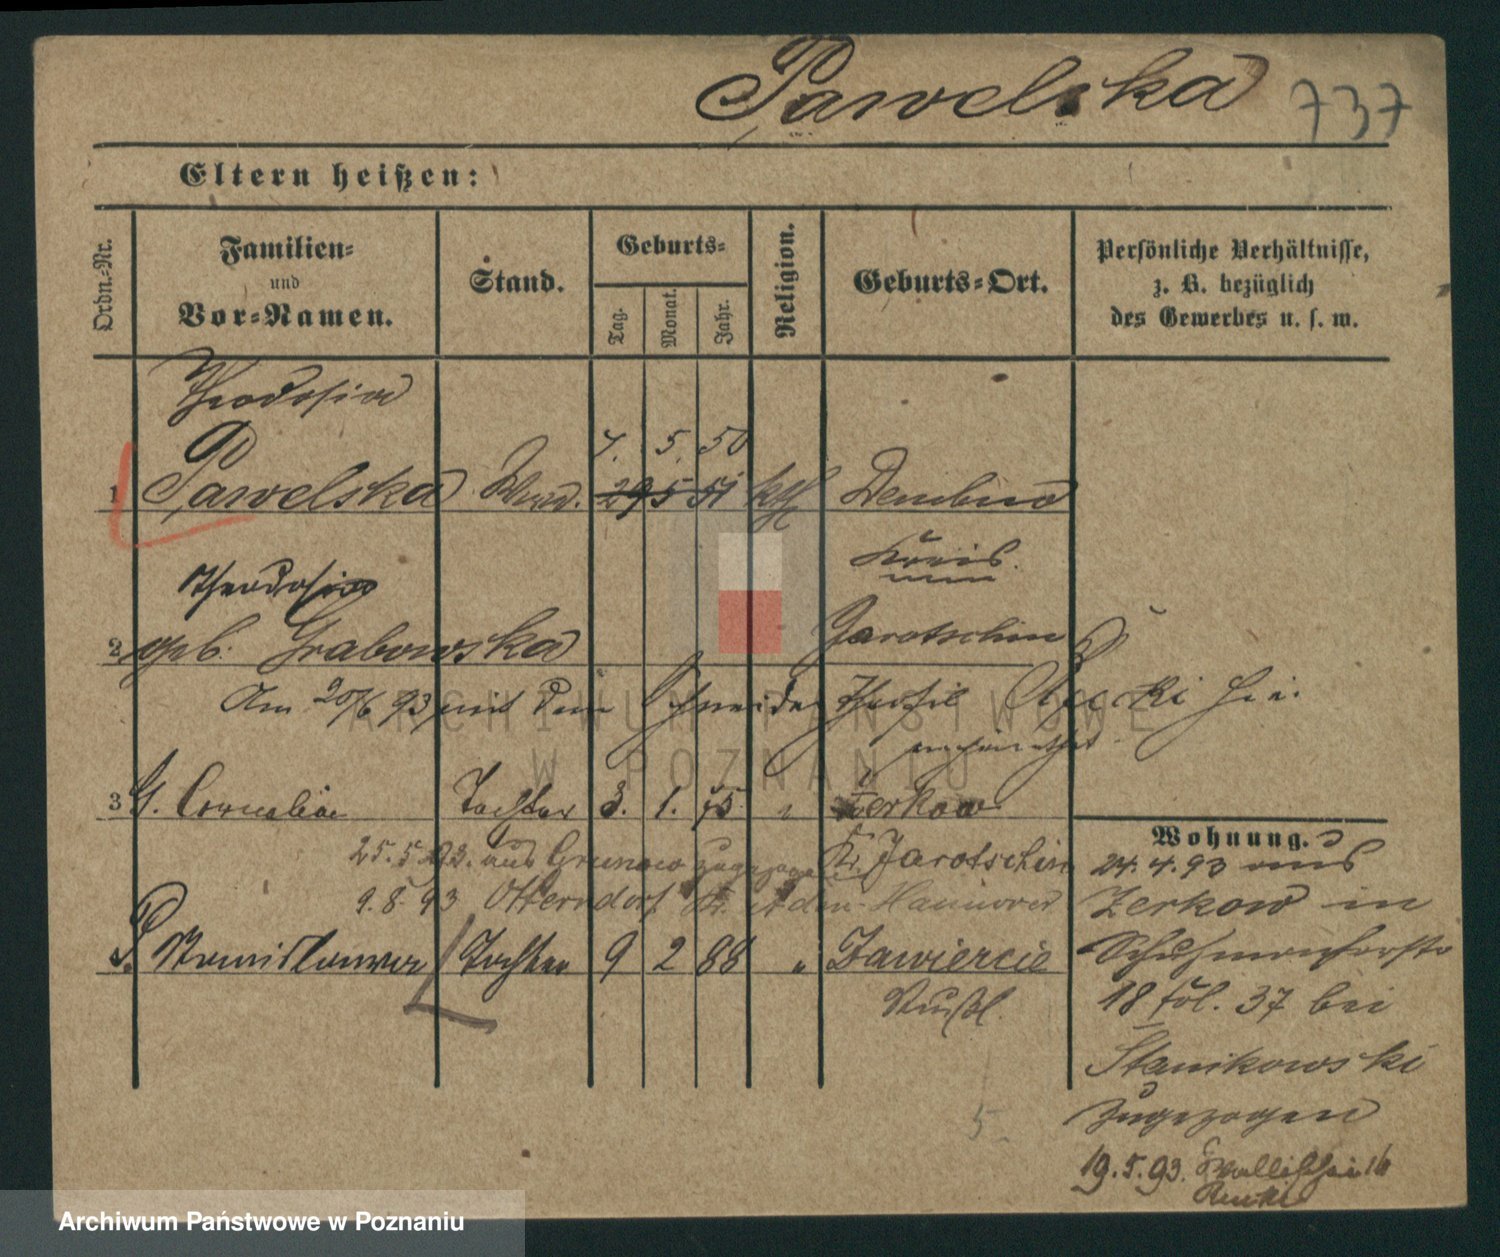 Pawelska 737
Eltern heißen:
Ordn.-Nr.
Familien-
und
Vor-Namen.
Stand.
Geburts-
Tag.
Monat.
Jahr.
Religion.
Geburts-Ort.
Persönliche Verhältnisse,
z. B. bezüglich
des Gewerbes u. s. w.
Theodosia
7. 5. 50
1 Pawelska 29 5 51 kth Dembno
Kreis
Theodosia
2 geb. Grabowska Jarotschin
Am 20/6 93 mit dem Schneider Theofil
3 Cornelia Tochter 3. 1. 75 " Zerkow
25. 5. 93. aus Grunau zugezogen Kr. Jarotschin
9. 8. 93 Otterndorf Hannover
Stanislawa Tochter 9 2 88 " Zawiercie
Rußl.
Wohnung.
24. 4. 93 aus
Zerkow in
18 fol. 37 bei
Stanikowski
zugezogen
19. 5. 93. Wallischei 16
5
ARCHIWUM PAŃSTWOWE
W POZNANIU
Archiwum Państwowe w Poznaniu